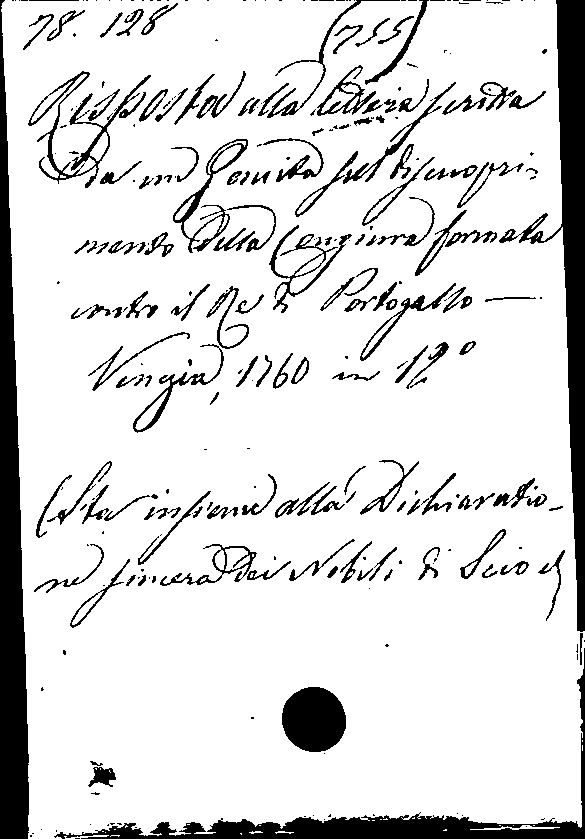 78. 128 (755)
Risposta alla lettera scritta
da un Gesuita sul discuopri-
mento della Congiura formata
contro il Re di Portogallo —
Venezia, 1760 in 12°
(Sta insieme alla Dichiaratio-
ne sincera dei Nobili di Scio